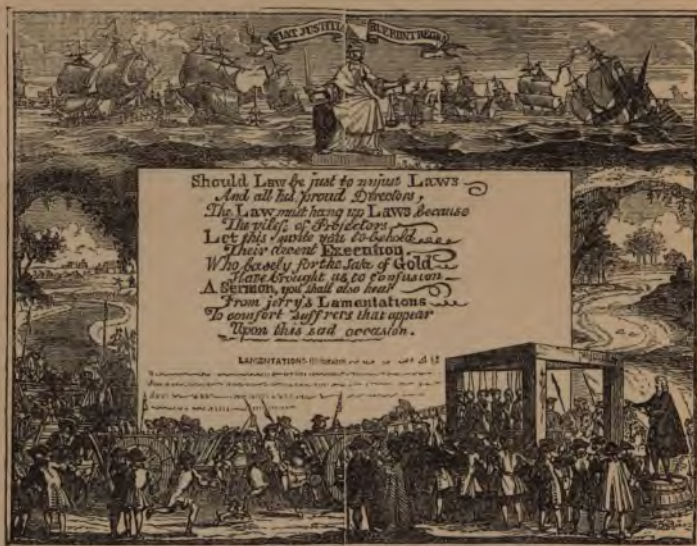 FIAT JUSTITIA RUERINT REGNA
Should Law be just to unjust Laws
And all his proud Directors,
The Law must hang up Laws because
The vilest of Projectors
Let this invite you to behold
Their decent Execution
Who basely for the sake of Gold
Have brought us to Confusion
A Sermon, you shall also hear
From jerry's Lamentations
To comfort Suff'rers that appear
Upon this sad occasion.
LAMENTATIONS